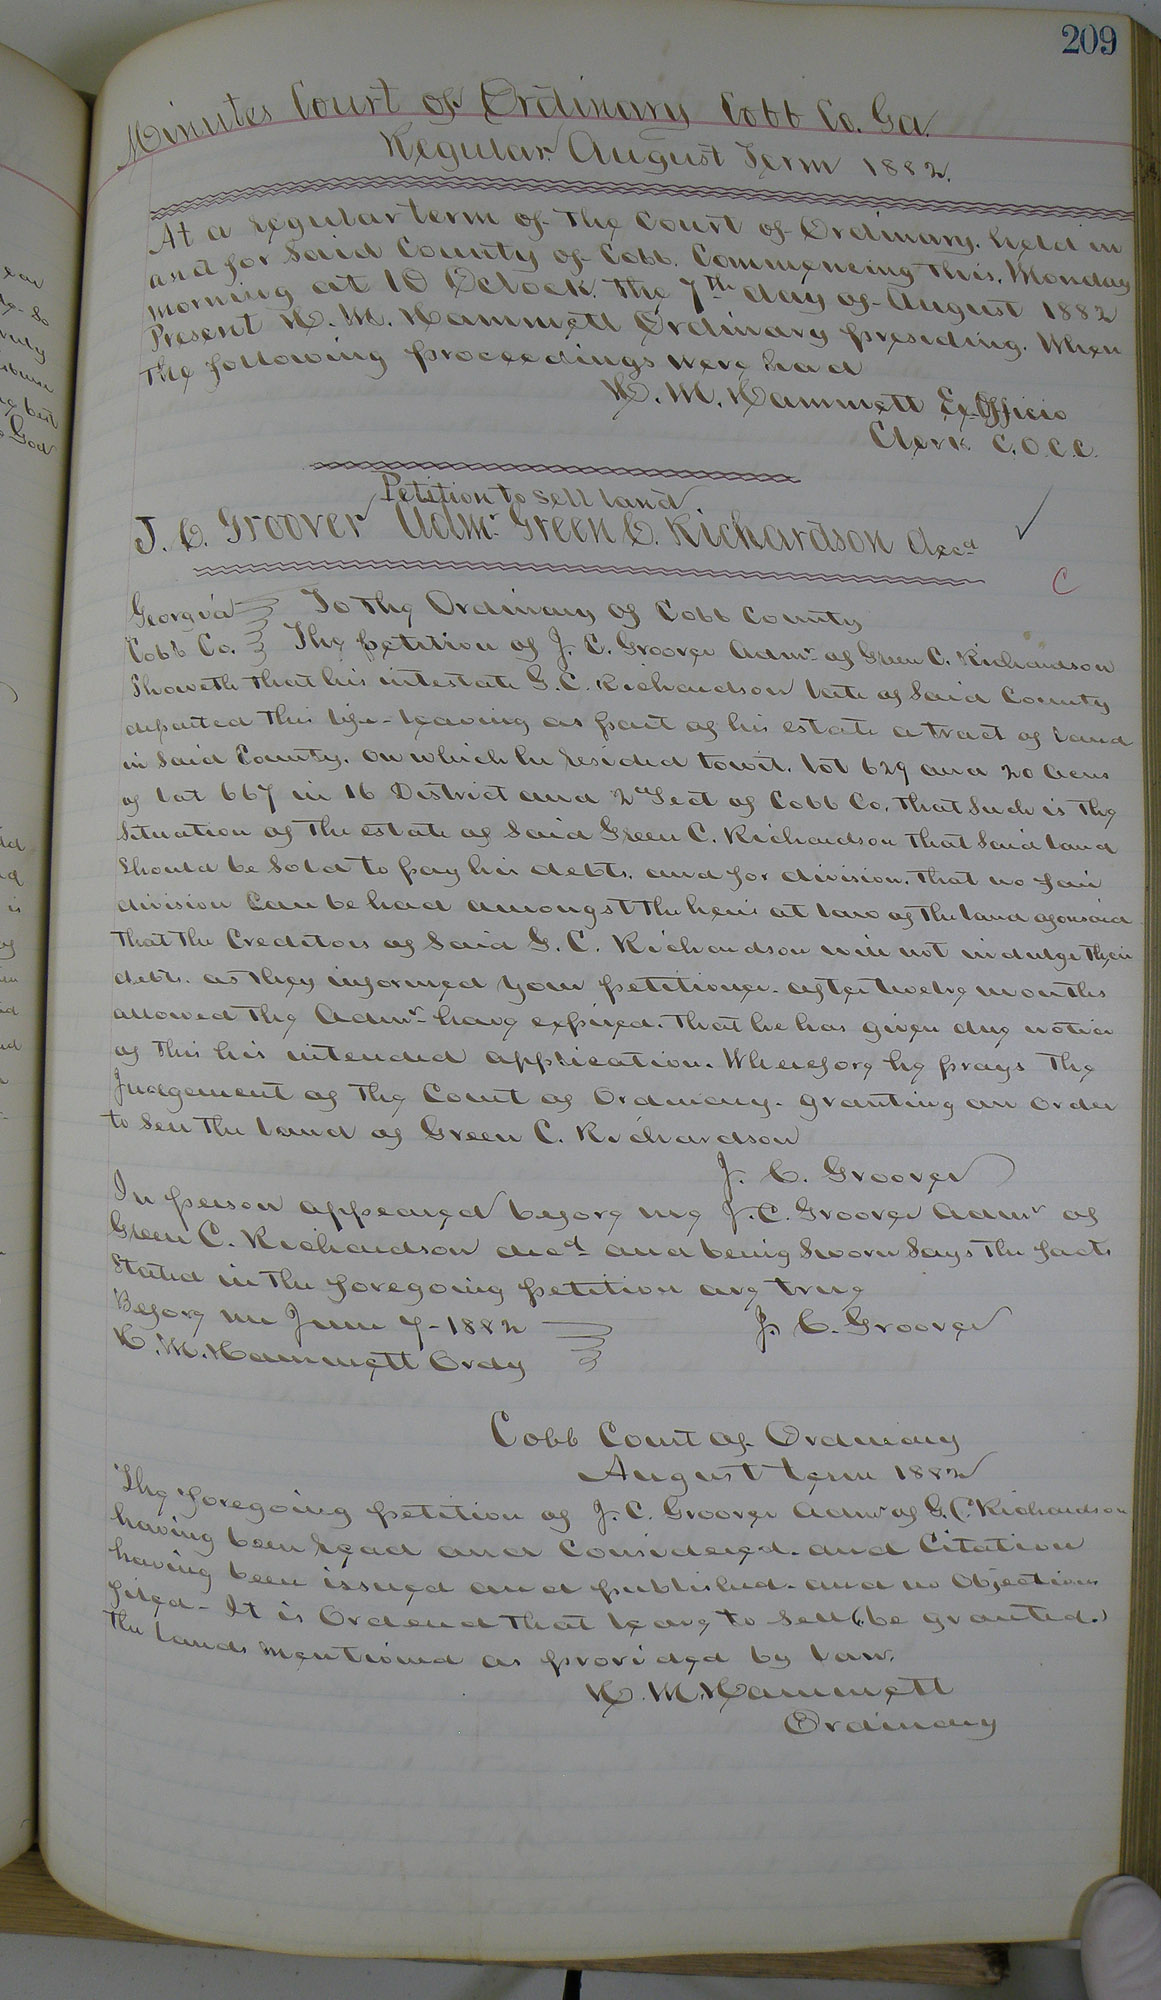 209
Minutes Court of Ordinary Cobb Co. Ga.
Regular August Term 1882.
At a regular term of the Court of Ordinary. held in
and for Said County of Cobb. Commencing this, Monday
morning at 10 Oclock. the 7th day of August 1882
Present H. M. Hammett Ordinary presiding. When
the following proceedings were had
H. M. Hammett Ex Officio
Clerk C.O.C.C.
Petition to sell land
J. C. Groover Admr. Green C. Richardson decd
C
Georgia To the Ordinary of Cobb County
Cobb Co. The petition of J. C. Groover Admr of Green C. Richardson
Showeth that his intestate G. C. Richardson late of Said County
departed this life - leaving as part of his estate a tract of land
in Said County. on which he resided towit. lot 629 and 20 Acres
of lot 667 in 16 District and 2d Sect of Cobb Co. That Such is the
Situation of the estate of Said Green C. Richardson that Said land
Should be Sold to pay his debts. and for division. that no fair
division Can be had amongst the heirs at law of the land aforesaid
That the Creditors of Said G. C. Richardson will not indulge their
debts. as they informed your petitioner. after twelve months
allowed the Admr have expired. that he has given due notice
of this his intended application. Wherefore he prays the
Judgement of the Court of Ordinary. granting an order
to Sell the land of Green C. Richardson
J. C. Groover
In person appeared before me J. C. Groover Admr of
Green C. Richardson decd and being Sworn Says the facts
Stated in the foregoing petition are true
Before me June 7 - 1882 J. C. Groover
H. M. Hammett Ordy
Cobb Court of Ordinary
August term 1882
The foregoing petition of J. C. Groover Admr of G. C. Richardson
having been read and Considered. and Citation
having been issued and published. and no Objections
filed - It is Ordered that leave to Sell (be granted.)
the lands mentioned as provided by law.
H. M. Hammett
Ordinary